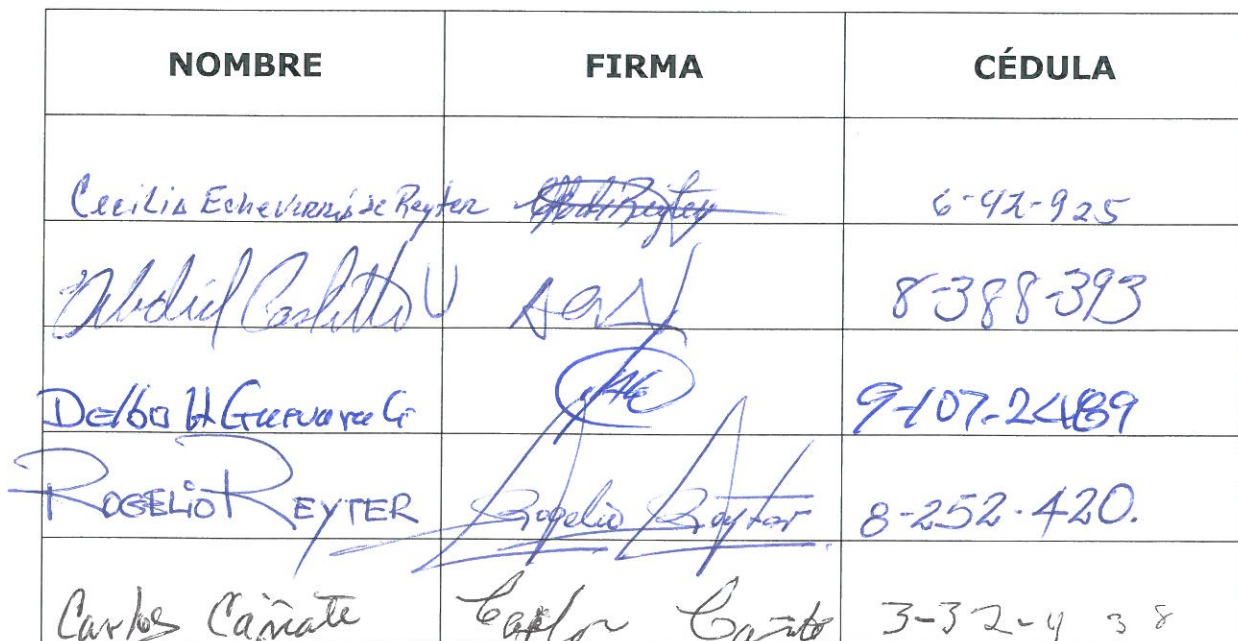 NOMBRE FIRMA CÉDULA
Cecilia Echeverría de Reyter 6-42-925
Abdiel Castillo V 8-388-393
Delbo H Guevara G 9-107-2489
ROGELIO REYTER Rogelio Reyter 8-252-420.
Carlos Cañate Carlos Cañate 3-32-4 38